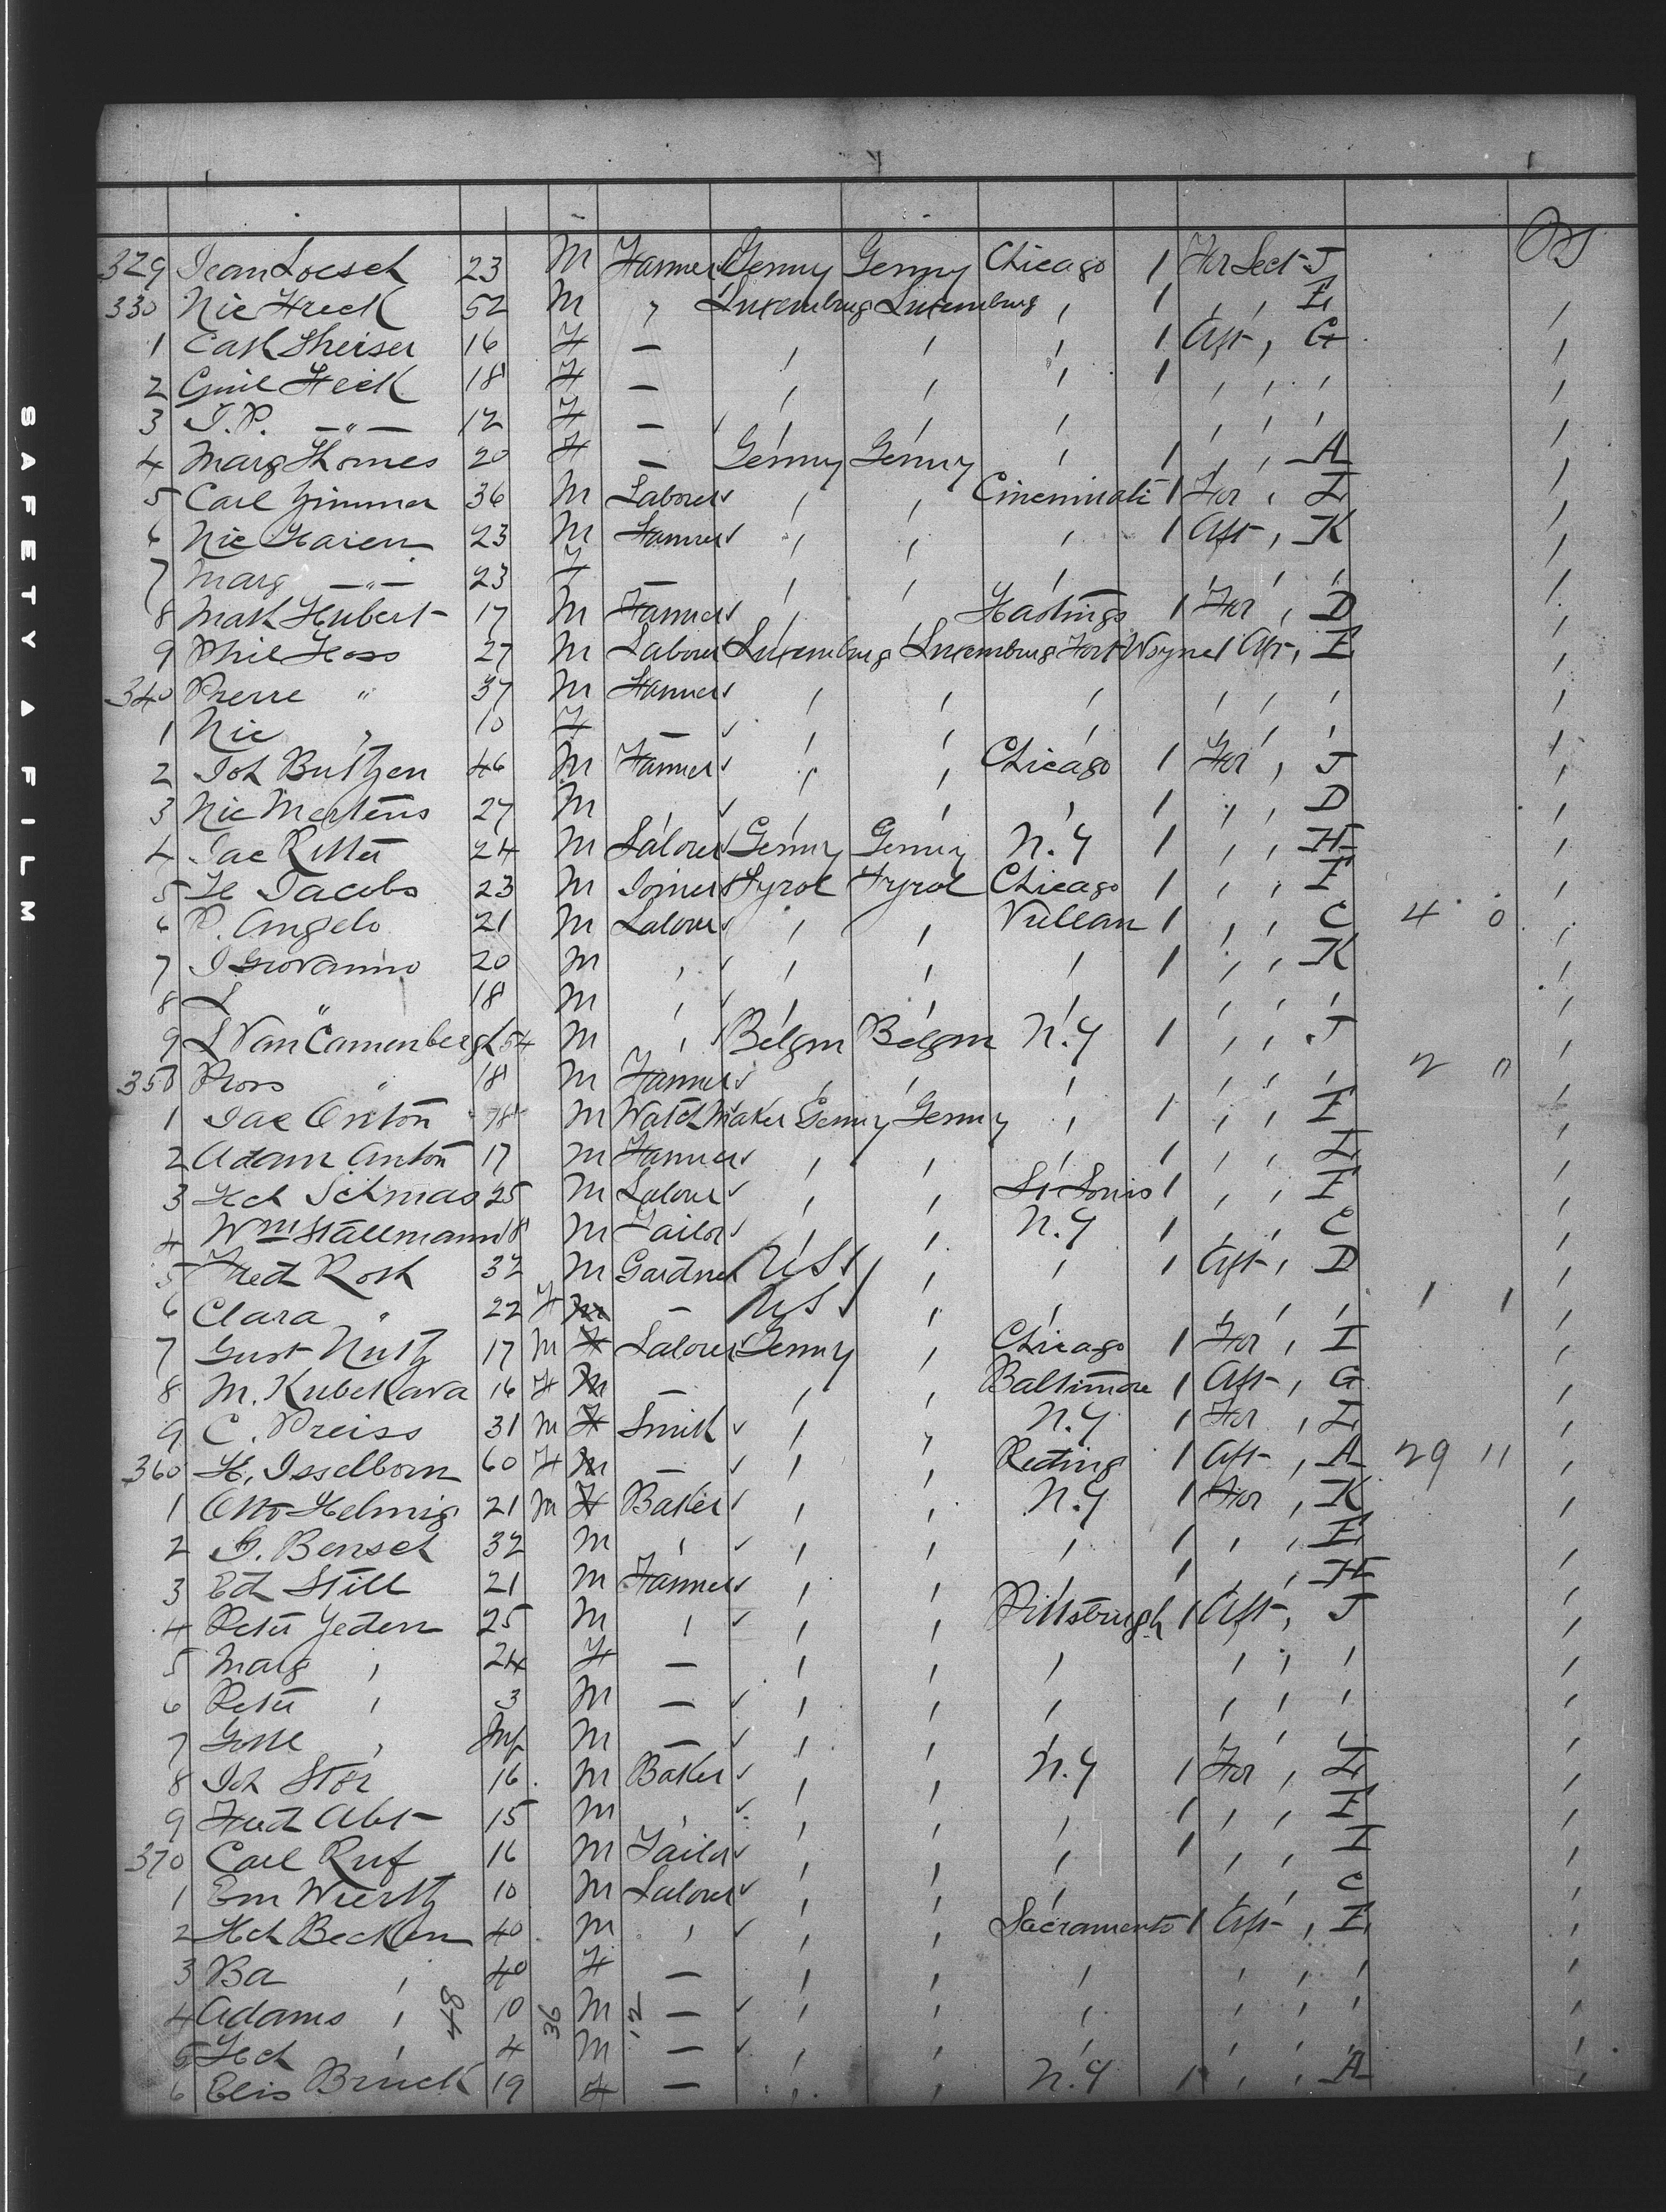 SAFETY A FILM
Ors
329 Jean Loesch 23 M Farmer Germy Germy Chicago 1 For Sect. J
330 Nic Freck 52 M " Luxemburg Luxemburg " 1 " " E
1 Cath Sheiser 16 F — " " " 1 Aft " G
2 Heick 18 F — " " " 1 " " "
3 J.P. —"— 12 F — " " " " " "
4 Marg Thomes 20 F — Germy Germy " 1 " " A
5 Carl Zimmer 36 M Labourer " " Cincinnati 1 For " I
6 Nic 23 M Farmer " " " 1 Aft " K
7 Marg —"— 23 F — " " " " " "
8 Math Hubert 17 M Farmer " " Hastings 1 For " D
9 Phil Hoss 27 M Labourer Luxemburg Luxemburg Fort Wayne 1 Aft " E
340 Pierre " 37 M Farmer " " " " " "
1 Nic " 10 F — " " " " " "
2 Joh Butzen 46 M Farmer " " Chicago 1 For " J
3 Nic Mertens 27 M " " " " 1 " " D
4 Jac Ritter 24 M Labourer Germy Germy N.Y 1 " " H
5 H Jacobs 23 M Joiner Tyrol Tyrol Chicago 1 " " E
6 P. Angelo 21 M Labourer " " Vullcan 1 " " C 4 0
7 J Giovanino 20 M " " " " 1 " " K
8 L " 18 M " " " " " " "
9 L Van Camenbergh 54 M " Belgm Belgm N.Y 1 " " J
350 Pros " 18 M Farmer " " " " " " 2 0
1 Jac Anton 18 M Watch Maker Germy Germy " 1 " " E
2 Adam Anton 17 M Farmer " " " 1 " " I
3 Hch Schmas 25 M Labourer " " St Louis 1 " " E
4 Wm Stallmann 18 M Tailor " " N.Y 1 " " C
5 Fred Rosh 32 M Gardner U.S. " " 1 Aft " D
6 Clara " 22 F — U.S. " " " " " 1 1
7 Gust Nutz 17 M Labourer Germy " Chicago 1 For " I
8 M. Kubekava 16 F — " " Baltimore 1 Aft " G
9 C. Preiss 31 M Smith " " N.Y 1 For " I
360 H. Isselborn 60 F — " " Reding 1 Aft " A 29 11
1 Otto Helmig 21 M Baker " " N.Y 1 For " K
2 G. Bensch 32 M " " " " 1 " " E
3 Ed Still 21 M Farmer " " " 1 " " H
4 Peter Jeden 25 M " " " Pittsburgh 1 Aft " J
5 Marg " 24 F — " " " " " "
6 Peter " 3 M — " " " " " "
7 " Inf M — " " " " " "
8 Joh Stör 16 M Baker " " N.Y 1 For " I
9 Fred Abt 15 M " " " " 1 " " E
370 Carl Ruf 16 M Tailor " " " 1 " " I
1 Em Wiertz 10 M Labourer " " " " " C
2 Hch Becken 40 M " " " Sacramento 1 Aft " E
3 Ba " 40 F — " " " " " "
4 Adams " 10 M — " " " " " "
5 Hch " 4 M — " " " " " "
6 Elis Brück 19 F — " " N.Y 1 " " A
48 36 12